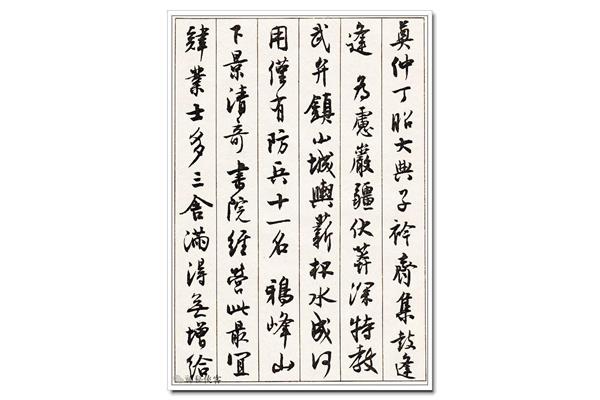 奠仲丁昭大典子衿齊集鼓逢
逢 為慮嚴疆伏莽深特教
武弁鎮小城輿薪杯水成何
用僅有防兵十一名 鴉峰山
下景清奇書院經營此最宜
肄業士多三舍滿得無增給